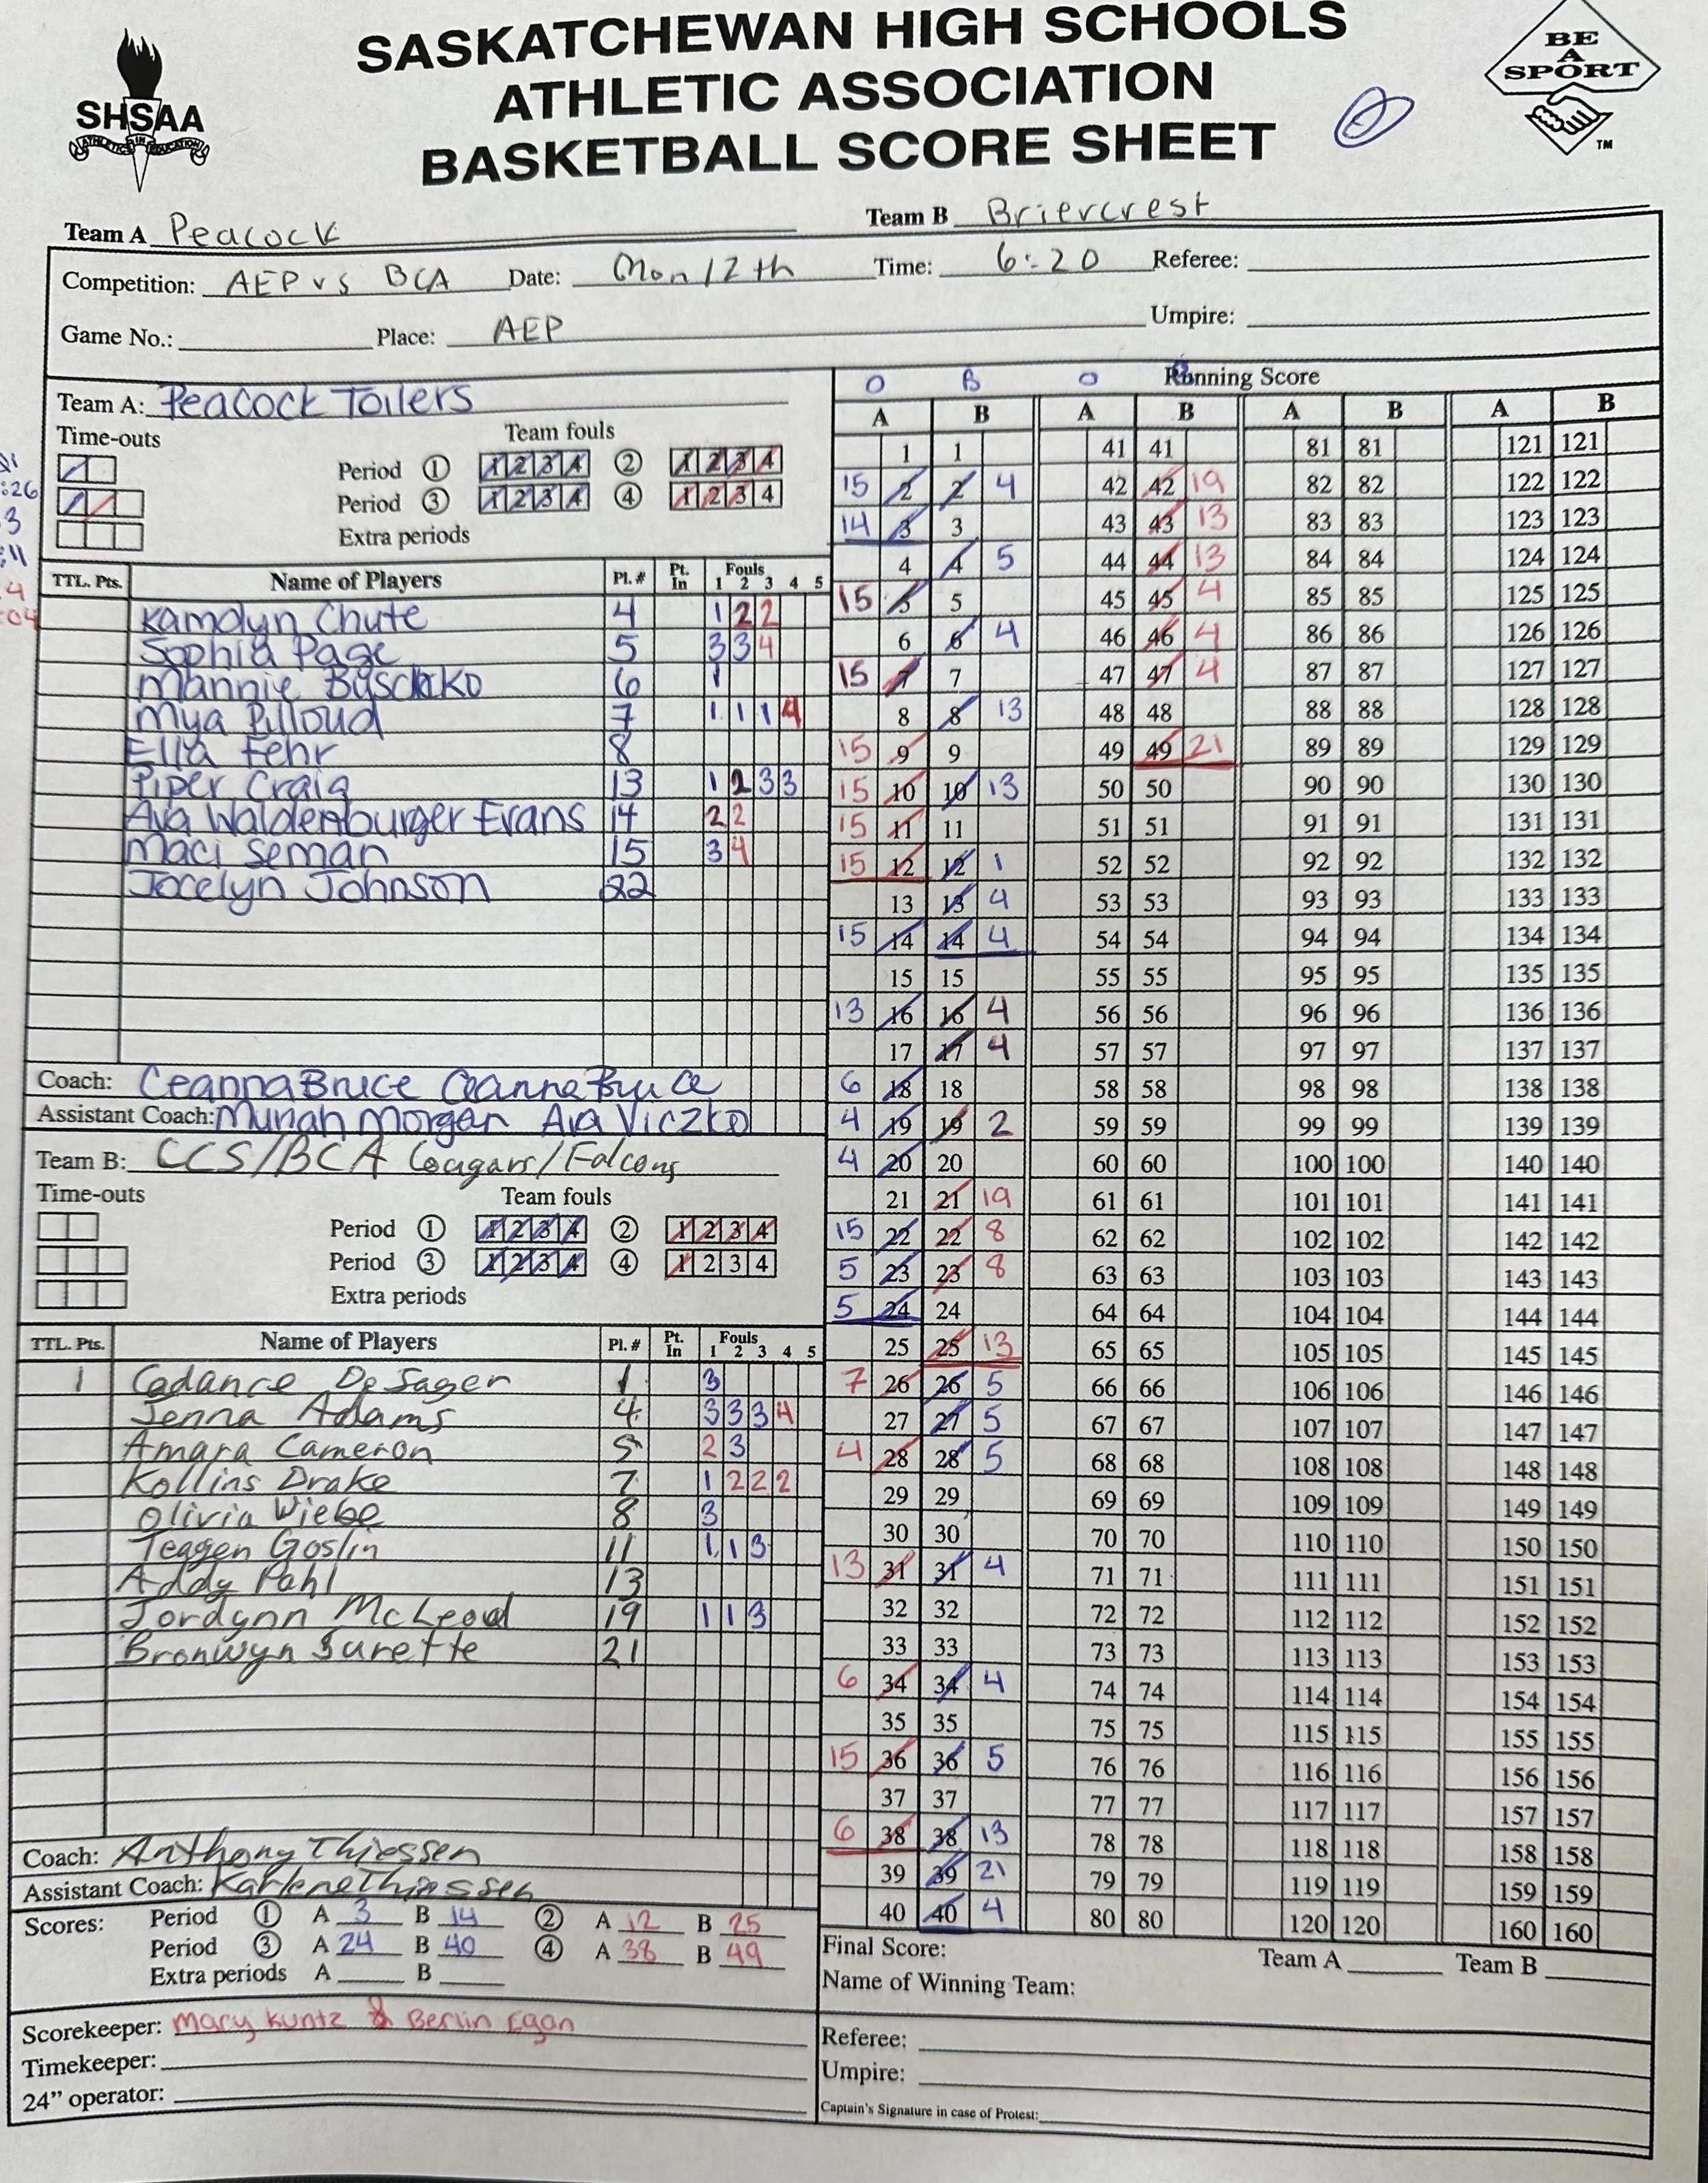 SASKATCHEWAN HIGH SCHOOLS
ATHLETIC ASSOCIATION
BASKETBALL SCORE SHEET
SHSAA
ATHLETICS IN EDUCATION
BE
A
SPORT
TM
Team A Peacock Team B Briercrest
Competition: AEP vs BCA Date: Mon 12th Time: 6:20 Referee:
Game No.: Place: AEP Umpire:
Team A: Peacock Toilers
Time-outs Team fouls
Period 1 1 2 3 4 2 1 2 3 4
Period 3 1 2 3 4 4 1 2 3 4
Extra periods
TTL. Pts. Name of Players Pl. # Pt. In Fouls 1 2 3 4 5
Kamdyn Chute 4 1 2 2
Sophia Page 5 3 3 4
Mannie 6 1
Mya Pilloud 7 1 1 1 4
Ella Fehr 8
Piper Craig 13 1 2 3 3
Ava Waldenburger Evans 14 2 2
Maci Seman 15 3 4
Jocelyn Johnson 22
Coach: Ceanna Bruce Ceanna Bruce
Assistant Coach: Morgan Ava Viczko
Team B: CCS/BCA Cougars/Falcons
Time-outs Team fouls
Period 1 1 2 3 4 2 1 2 3 4
Period 3 1 2 3 4 4 1 2 3 4
Extra periods
TTL. Pts. Name of Players Pl. # Pt. In Fouls 1 2 3 4 5
1 Cadance DeJager 1 3
Jenna Adams 4 3 3 3 4
Amara Cameron 5 2 3
Kollins Drake 7 1 2 2 2
Olivia Wiebe 8 3
Teagen Goslin 11 1 1 3
Addy Pahl 13
Jordynn McLeod 19 1 1 3
Bronwyn Surette 21
Coach: Anthony Thiessen
Assistant Coach: Karlene Thiessen
Scores: Period 1 A 3 B 14 2 A 12 B 25
Period 3 A 24 B 40 4 A 38 B 49
Extra periods A B
Scorekeeper: Mary Kuntz & Berlin Egan
Timekeeper:
24” operator:
O B O Running Score
A B A B A B A B
1 1 41 41 81 81 121 121
15 2 2 4 42 42 19 82 82 122 122
14 3 3 43 43 13 83 83 123 123
4 4 5 44 44 13 84 84 124 124
15 5 5 45 45 4 85 85 125 125
6 6 4 46 46 4 86 86 126 126
15 7 7 47 47 4 87 87 127 127
8 8 13 48 48 88 88 128 128
15 9 9 49 49 21 89 89 129 129
15 10 10 13 50 50 90 90 130 130
15 11 11 51 51 91 91 131 131
15 12 12 1 52 52 92 92 132 132
13 13 4 53 53 93 93 133 133
15 14 14 4 54 54 94 94 134 134
15 15 55 55 95 95 135 135
13 16 16 4 56 56 96 96 136 136
17 17 4 57 57 97 97 137 137
6 18 18 58 58 98 98 138 138
4 19 19 2 59 59 99 99 139 139
4 20 20 60 60 100 100 140 140
21 21 19 61 61 101 101 141 141
15 22 22 8 62 62 102 102 142 142
5 23 23 8 63 63 103 103 143 143
5 24 24 64 64 104 104 144 144
25 25 13 65 65 105 105 145 145
7 26 26 5 66 66 106 106 146 146
27 27 5 67 67 107 107 147 147
4 28 28 5 68 68 108 108 148 148
29 29 69 69 109 109 149 149
30 30 70 70 110 110 150 150
13 31 31 4 71 71 111 111 151 151
32 32 72 72 112 112 152 152
33 33 73 73 113 113 153 153
6 34 34 4 74 74 114 114 154 154
35 35 75 75 115 115 155 155
15 36 36 5 76 76 116 116 156 156
37 37 77 77 117 117 157 157
6 38 38 13 78 78 118 118 158 158
39 39 21 79 79 119 119 159 159
40 40 4 80 80 120 120 160 160
Final Score: Team A Team B
Name of Winning Team:
Referee:
Umpire:
Captain's Signature in case of Protest: